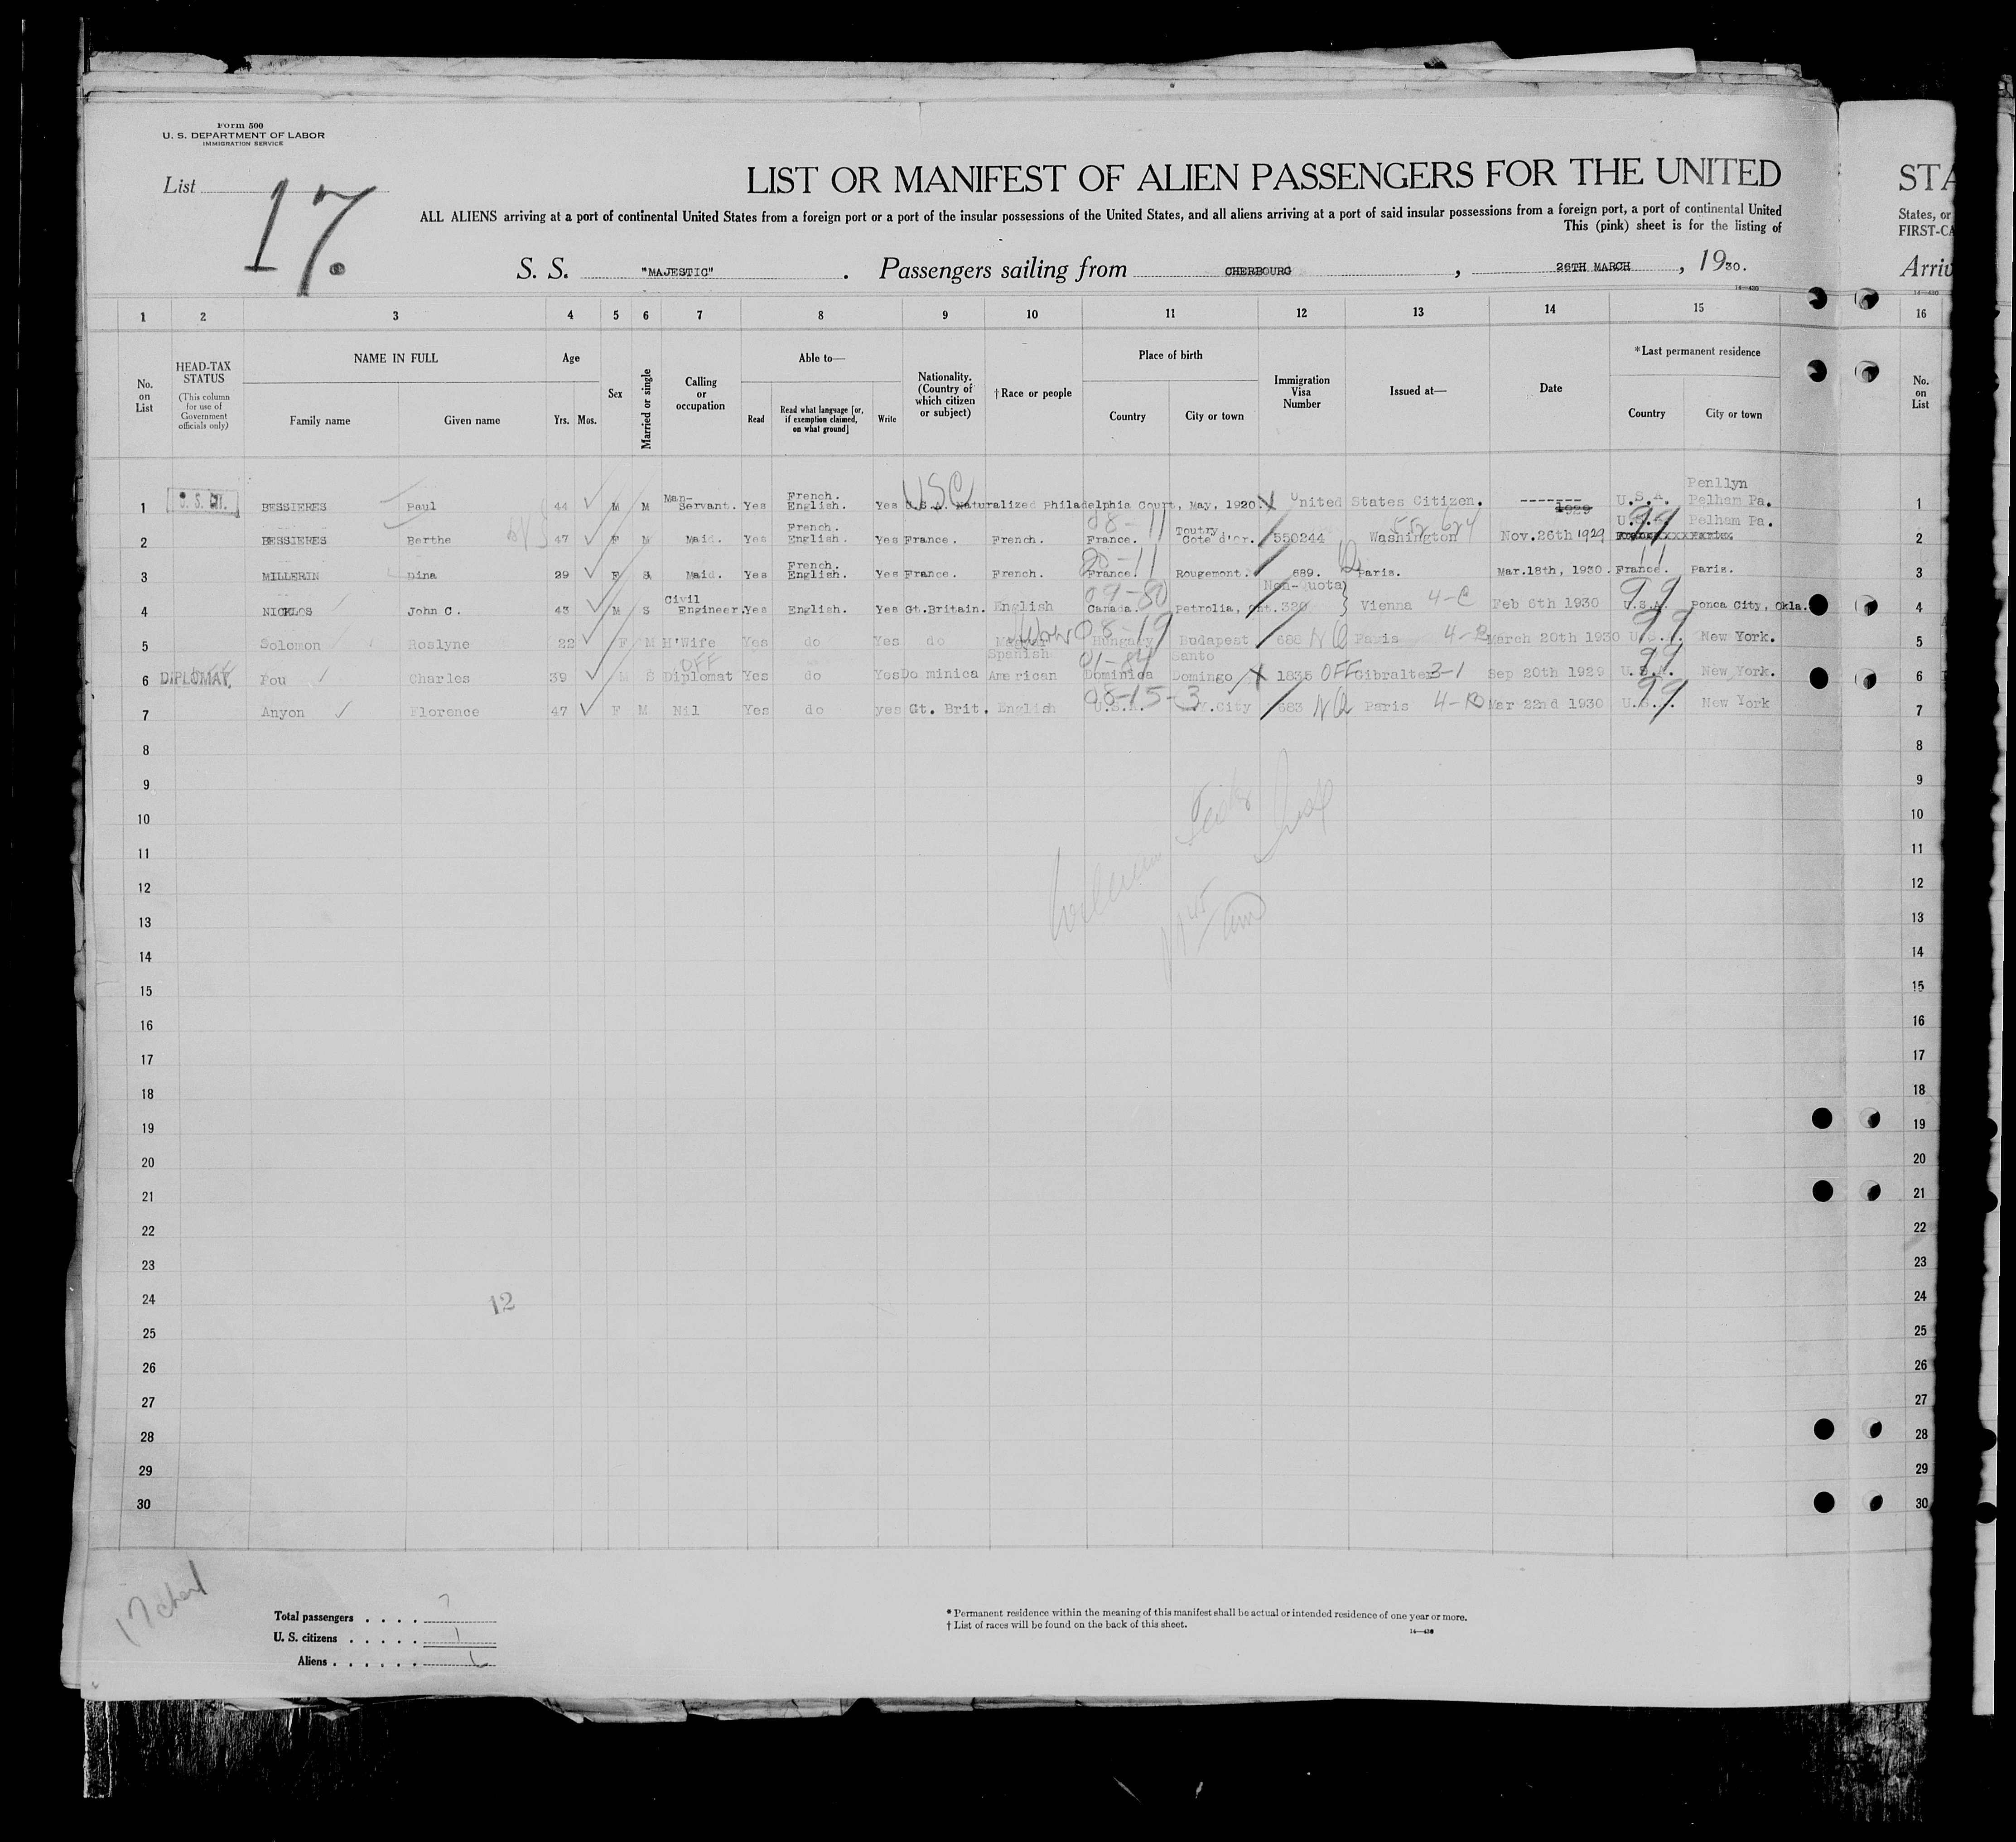 Form 500
U. S. DEPARTMENT OF LABOR
IMMIGRATION SERVICE
List 17.
LIST OR MANIFEST OF ALIEN PASSENGERS FOR THE UNITED
STA
ALL ALIENS arriving at a port of continental United States from a foreign port or a port of the insular possessions of the United States, and all aliens arriving at a port of said insular possessions from a foreign port, a port of continental United
States, or
This (pink) sheet is for the listing of
FIRST-CA
S. S. "MAJESTIC" . Passengers sailing from CHERBOURG , 26TH MARCH , 1930.
Arriv
14—430
1 2 3 4 5 6 7 8 9 10 11 12 13 14 15 16
No. on List
HEAD-TAX STATUS (This column for use of Government officials only)
NAME IN FULL
Family name Given name
Age
Yrs. Mos.
Sex
Married or single
Calling or occupation
Able to—
Read
Read what language [or, if exemption claimed, on what ground]
Write
Nationality. (Country of which citizen or subject)
†Race or people
Place of birth
Country City or town
Immigration Visa Number
Issued at—
Date
*Last permanent residence
Country City or town
No. on List
1 BESSIERES Paul 44 M M Man-Servant. Yes French. English. Yes U.S.A. Naturalized Philadelphia Court, May, 1920. USC United States Citizen. ------- U.S.A. Penllyn Pelham Pa. 1
2 BESSIERES Berthe 47 F M Maid. Yes French. English. Yes France. French. 08-11 France. Toutry Cote d'or. 550244 Washington Nov.26th 1929 U.S.A. 99 Pelham Pa. 2
3 MILLERIN Dina 29 F S Maid. Yes French. English. Yes France. French. France. Rougemont. 689. Paris. Mar.18th, 1930. France. 11 Paris. 3
4 NICKLOS John C. 43 M S Civil Engineer. Yes English. Yes Gt.Britain. English 09-80 Canada. Petrolia, Ont. Non-Quota 320 Vienna 4-C Feb 6th 1930 U.S.A. 99 Ponca City, Okla. 4
5 Solomon Roslyne 22 F M H'Wife Yes do Yes do 08-19 Hungary Budapest 688 NQ Paris 4-B March 20th 1930 U.S.A. 99 New York. 5
6 DIPLOMAT. Pou Charles 39 M S OFF Diplomat Yes do Yes Dominica Spanish American 01-84 Dominica Santo Domingo 1835 OFF Gibralter 3-1 Sep 20th 1929 U.S.A. 99 New York. 6
7 Anyon Florence 47 F M Nil Yes do yes Gt. Brit. English 08-15-3 U.S.A. N.Y.City 683 NQ Paris 4-B Mar 22nd 1930 U.S.A. 99 New York 7
8 8
9 9
10 10
11 11
12 12
13 13
14 14
15 15
16 16
17 17
18 18
19 19
20 20
21 21
22 22
23 23
24 12 24
25 25
26 26
27 27
28 28
29 29
30 30
Total passengers . . . . 7
U. S. citizens . . . . . 1
Aliens . . . . . . 6
* Permanent residence within the meaning of this manifest shall be actual or intended residence of one year or more.
† List of races will be found on the back of this sheet.
14—430